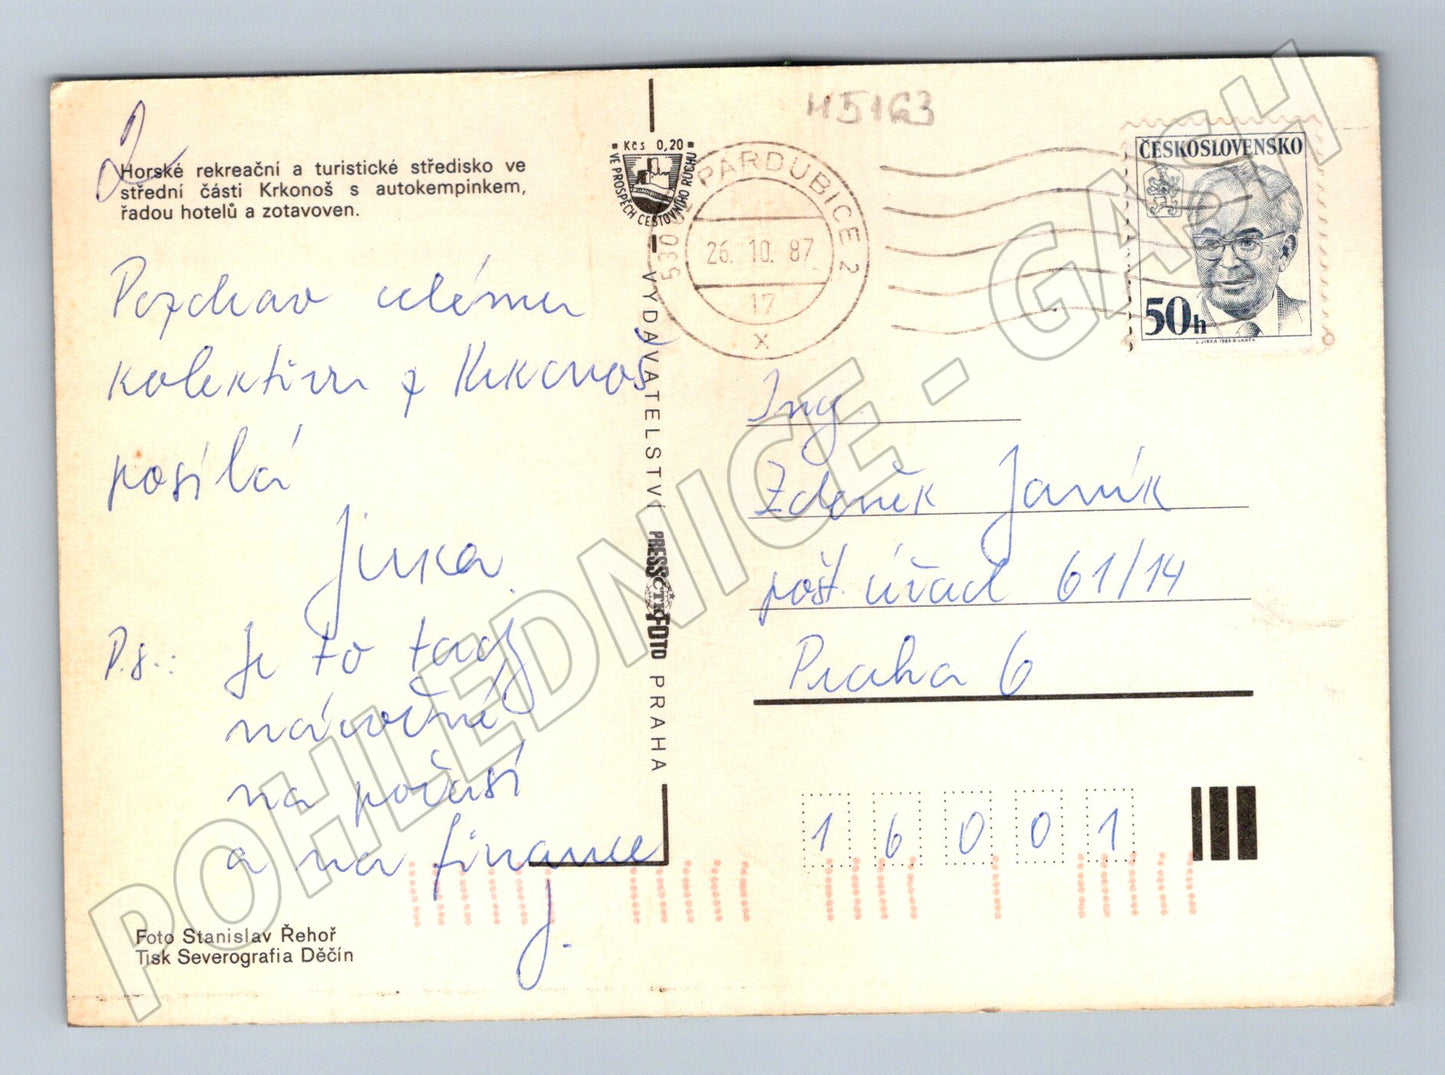 45163
Horské rekreační a turistické středisko ve
střední části Krkonoš s autokempinkem,
řadou hotelů a zotavoven.
Kčs 0,20
VE PROSPĚCH CESTOVNÍHO RUCHU
530 02 PARDUBICE 2
26. 10. 87
17
x
ČESKOSLOVENSKO
50h
Pozdrav celému
kolektivu z Krkonoš
posílá
Jirka
P.s.: Je to tady
náročné
na počasí
a na finance
J.
VYDAVATELSTVÍ PRESSFOTO PRAHA
ČTK
Ing.
Zdeněk Janík
pošt. úřad 61/14
Praha 6
16001
Foto Stanislav Řehoř
Tisk Severografia Děčín
POHLEDNICE - GASH